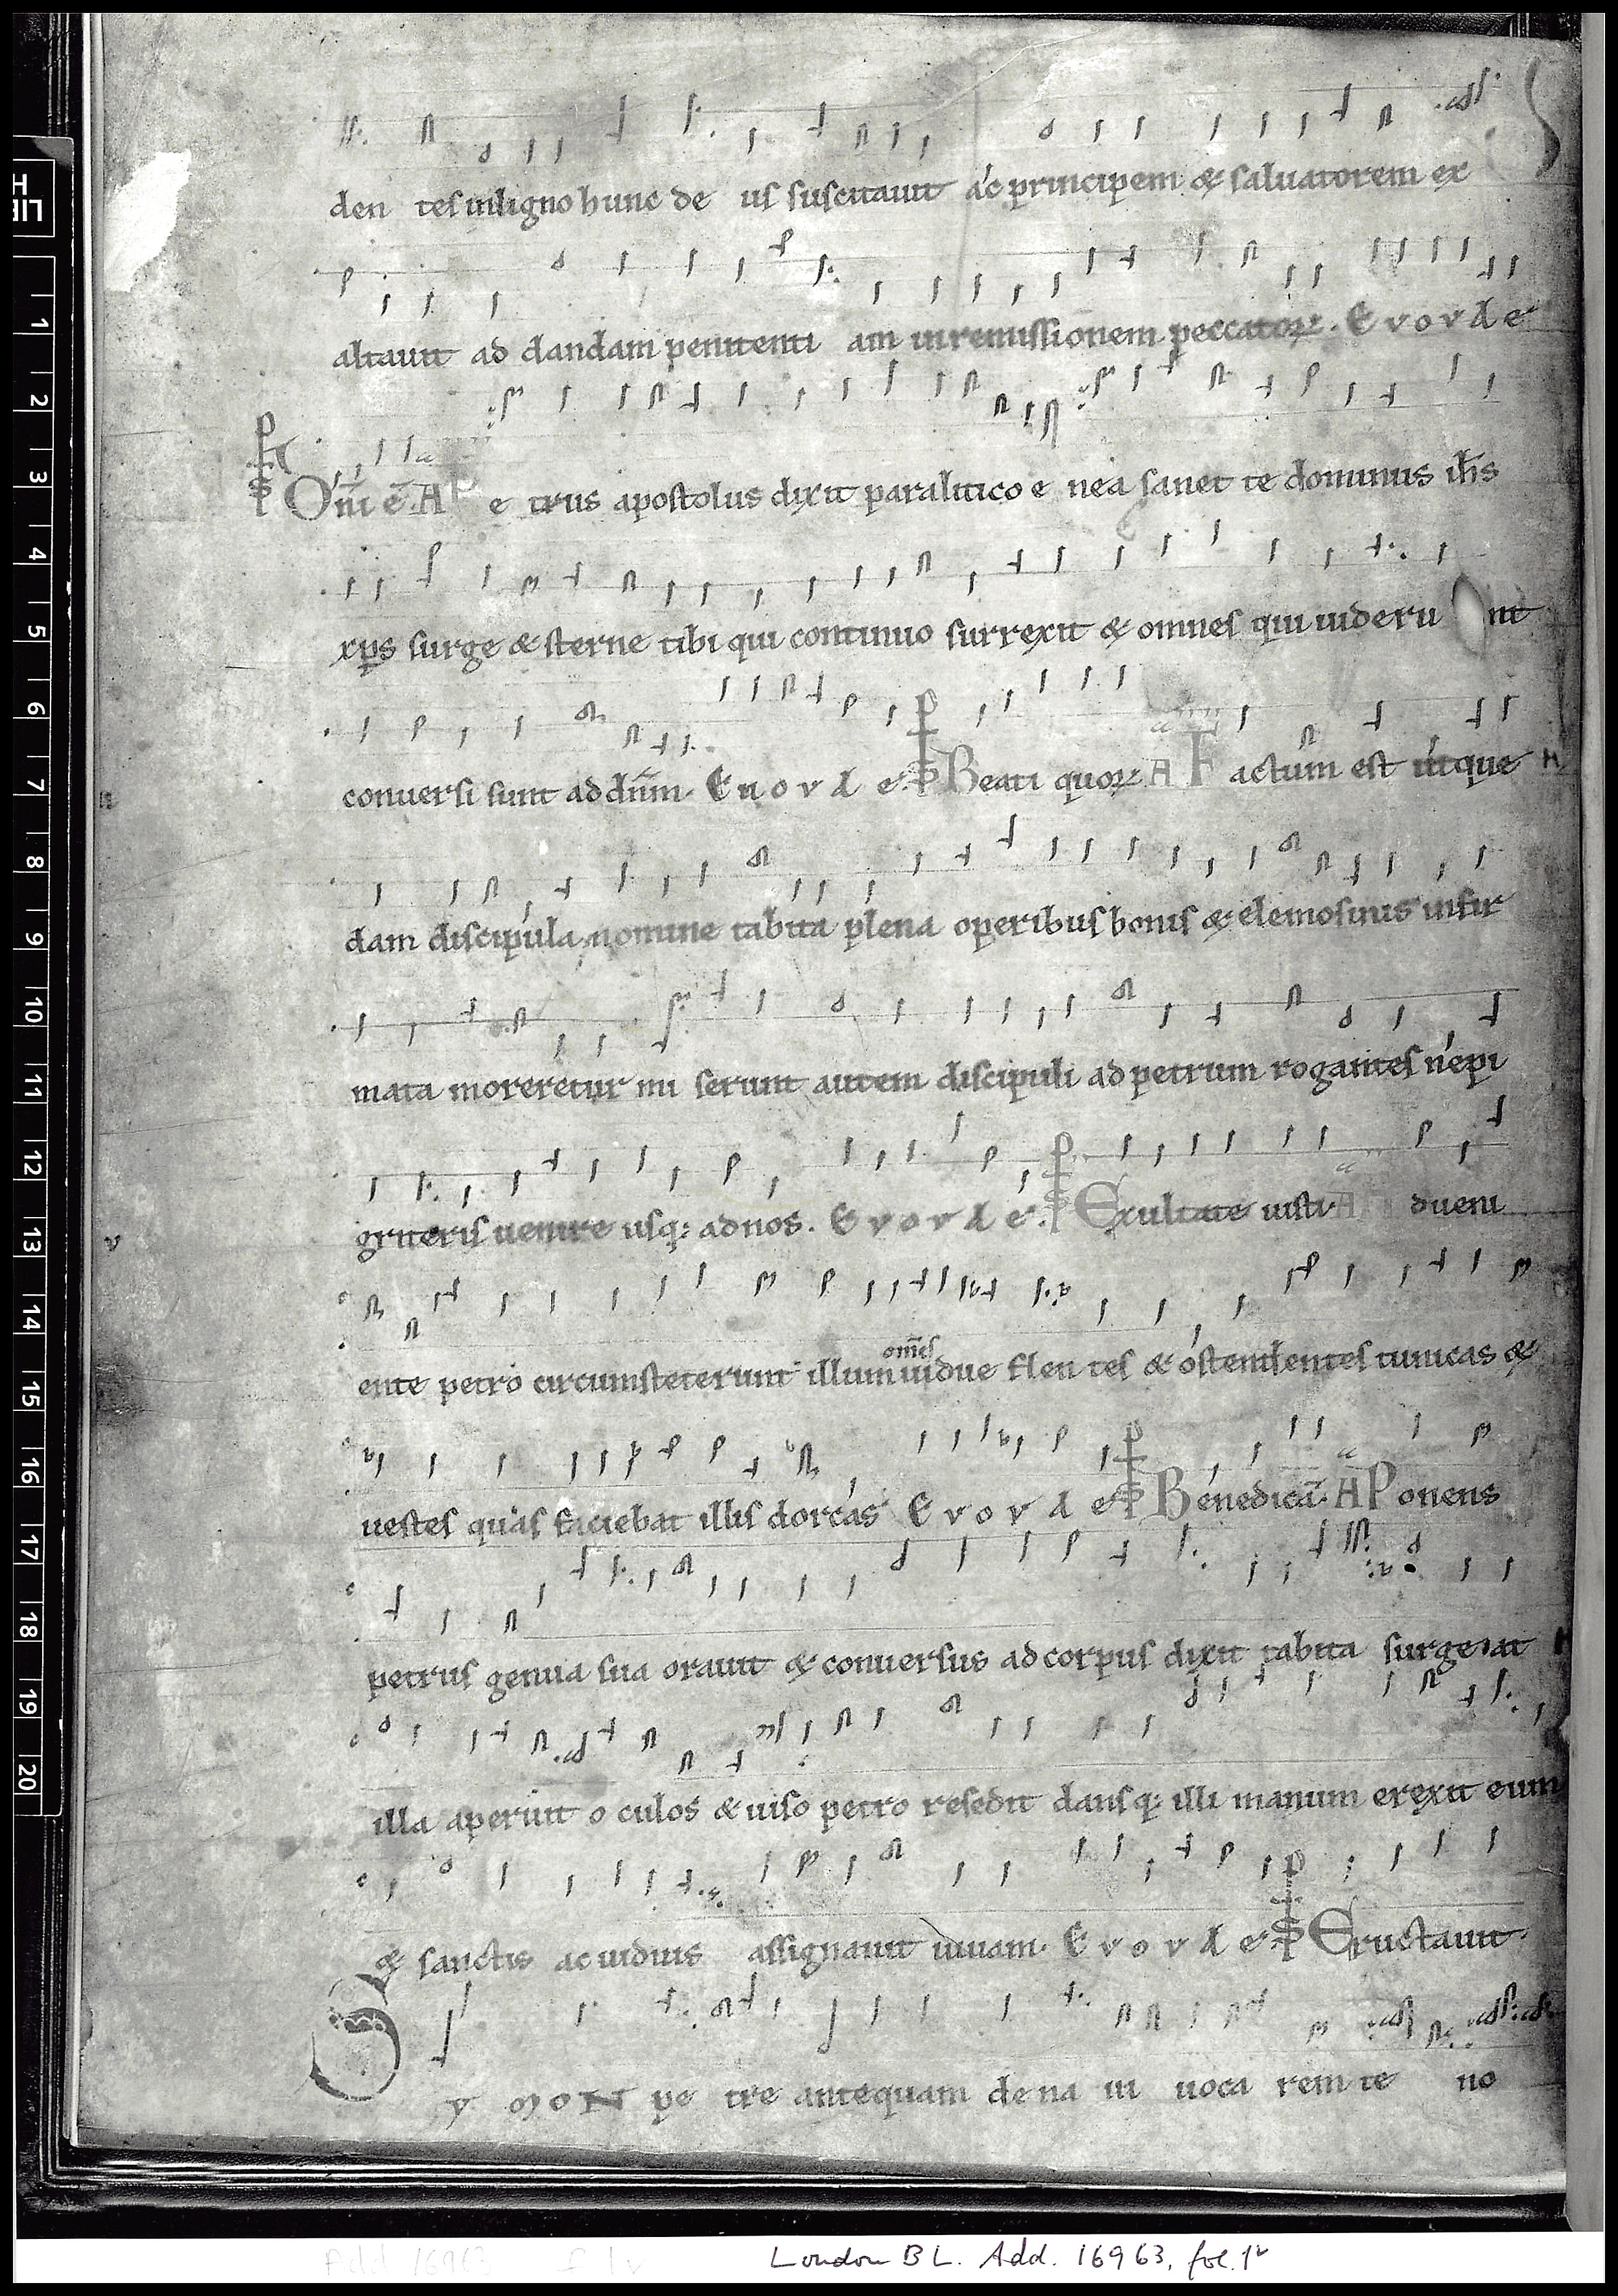 den tes in ligno hunc de us suscitauit ac principem & saluatorem ex
altauit ad dandam penitenti am in remissionem peccatoꝝ. E v o v A e
Om̄i ē. A P e trus apostolus dixit paralitico e nea sanet te dominus ih̄s
xp̄s surge & sterne tibi qui continuo surrexit & omnes qui uideru nt
conuersi sunt ad dn̄m. E u o v A e. Beati quoꝝ. A F actum est utque
dam discipula, nomine tabita plena operibus bonis & elemosinis infir
mata moreretur mi serunt autem discipuli ad petrum rogantes nepi
griteris uenire usq; ad nos. E v o v A e. Exultate iusti A dueni
om̄s
ente petro circumsteterunt illum uidue flen tes & ostendentes tunicas &
uestes quas faciebat illis dorcas E v o v A e Benedicā. A P onens
petrus genua sua orauit & conuersus ad corpus dixit tabita surge at
illa aperuit o culos & uiso petro resedit dansq; illi manum erexit eum
& sanctis ac uiduis assignauit uiuam. E v o v A e. Eructauit.
S y MON pe tre antequam de na ui uoca rem te no
1
2
3
4
5
6
7
8
9
10
11
12
13
14
15
16
17
18
19
20
London BL. Add. 16963, fol. 1v